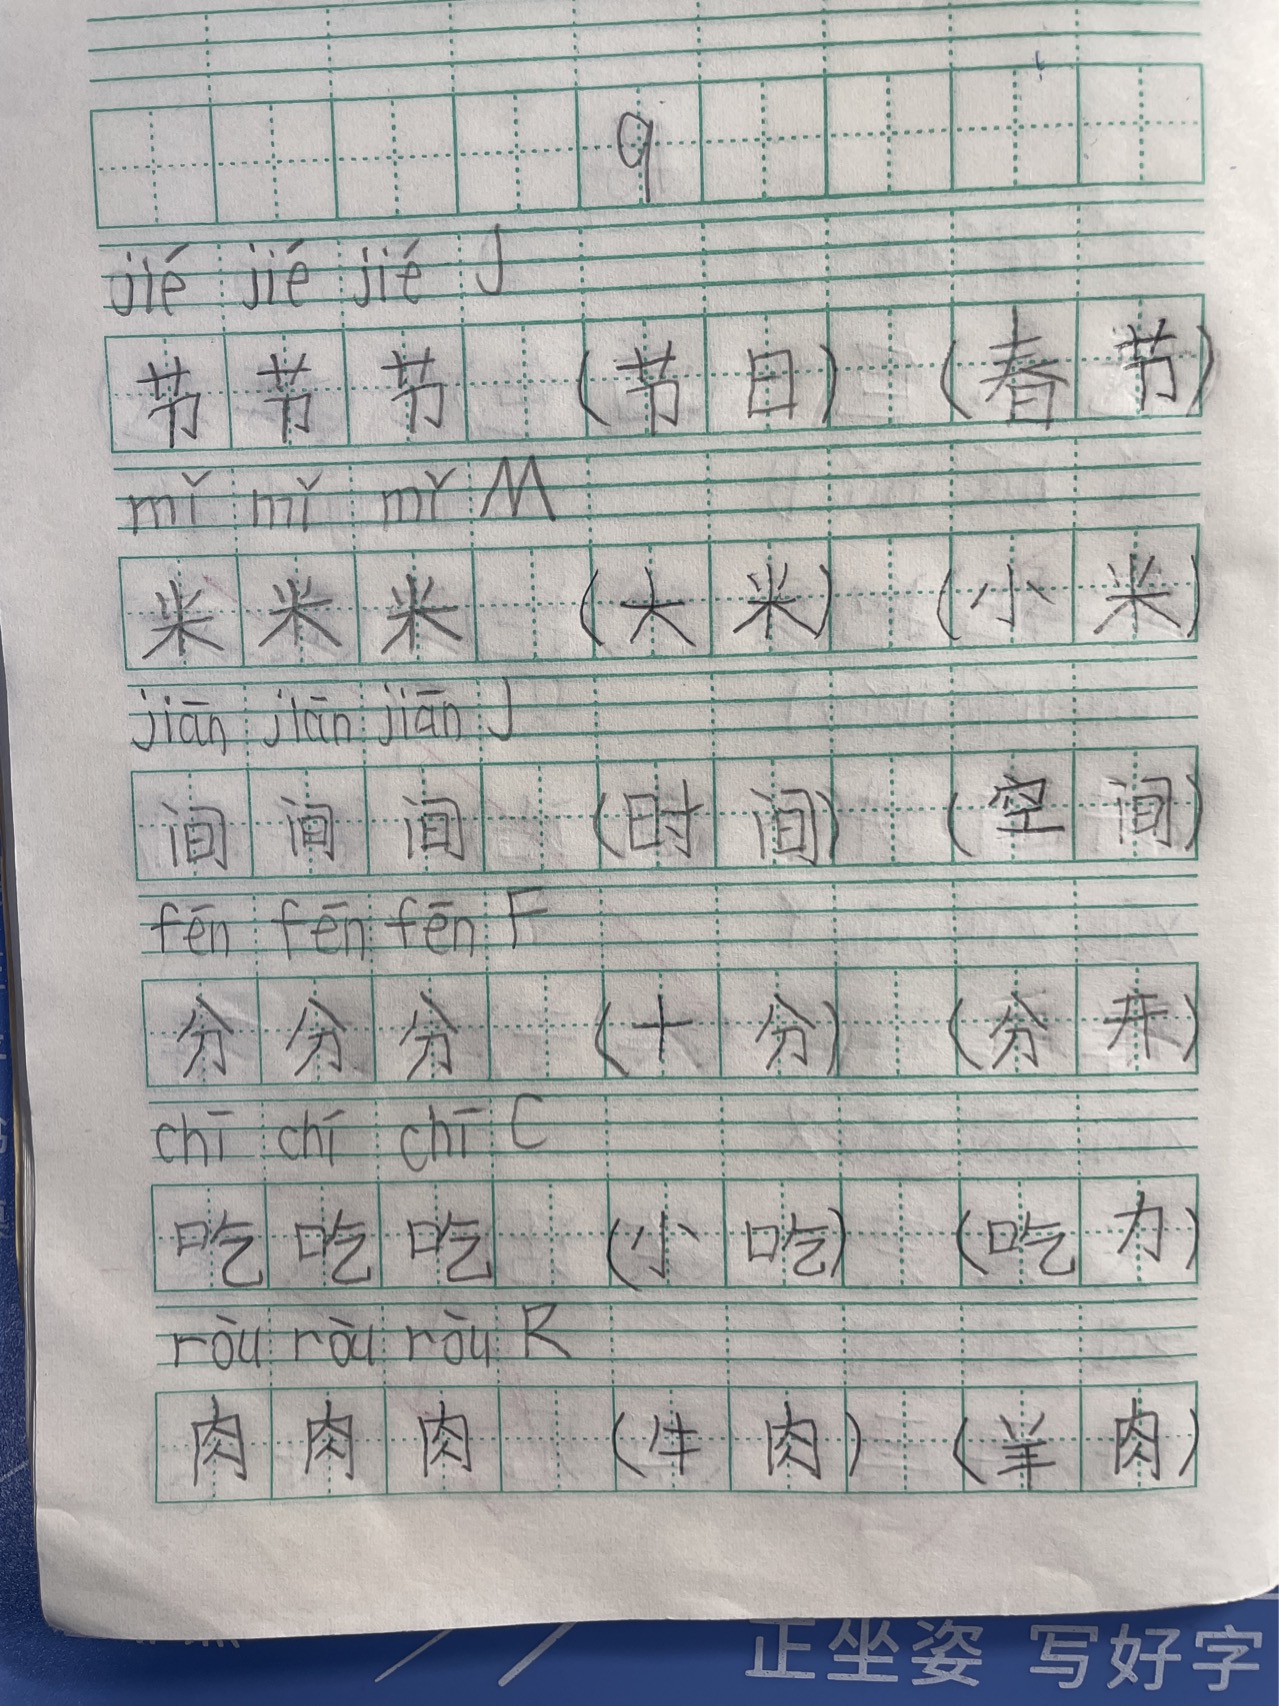 9
jié jié jié J
节 节 节 (节日) (春节)
mǐ mǐ mǐ M
米 米 米 (大米) (小米)
jiān jiān jiān J
间 间 间 (时间) (空间)
fēn fēn fēn F
分 分 分 (十分) (分开)
chī chí chī C
吃 吃 吃 (小吃) (吃力)
ròu ròu ròu R
肉 肉 肉 (牛肉) (羊肉)
正坐姿 写好字